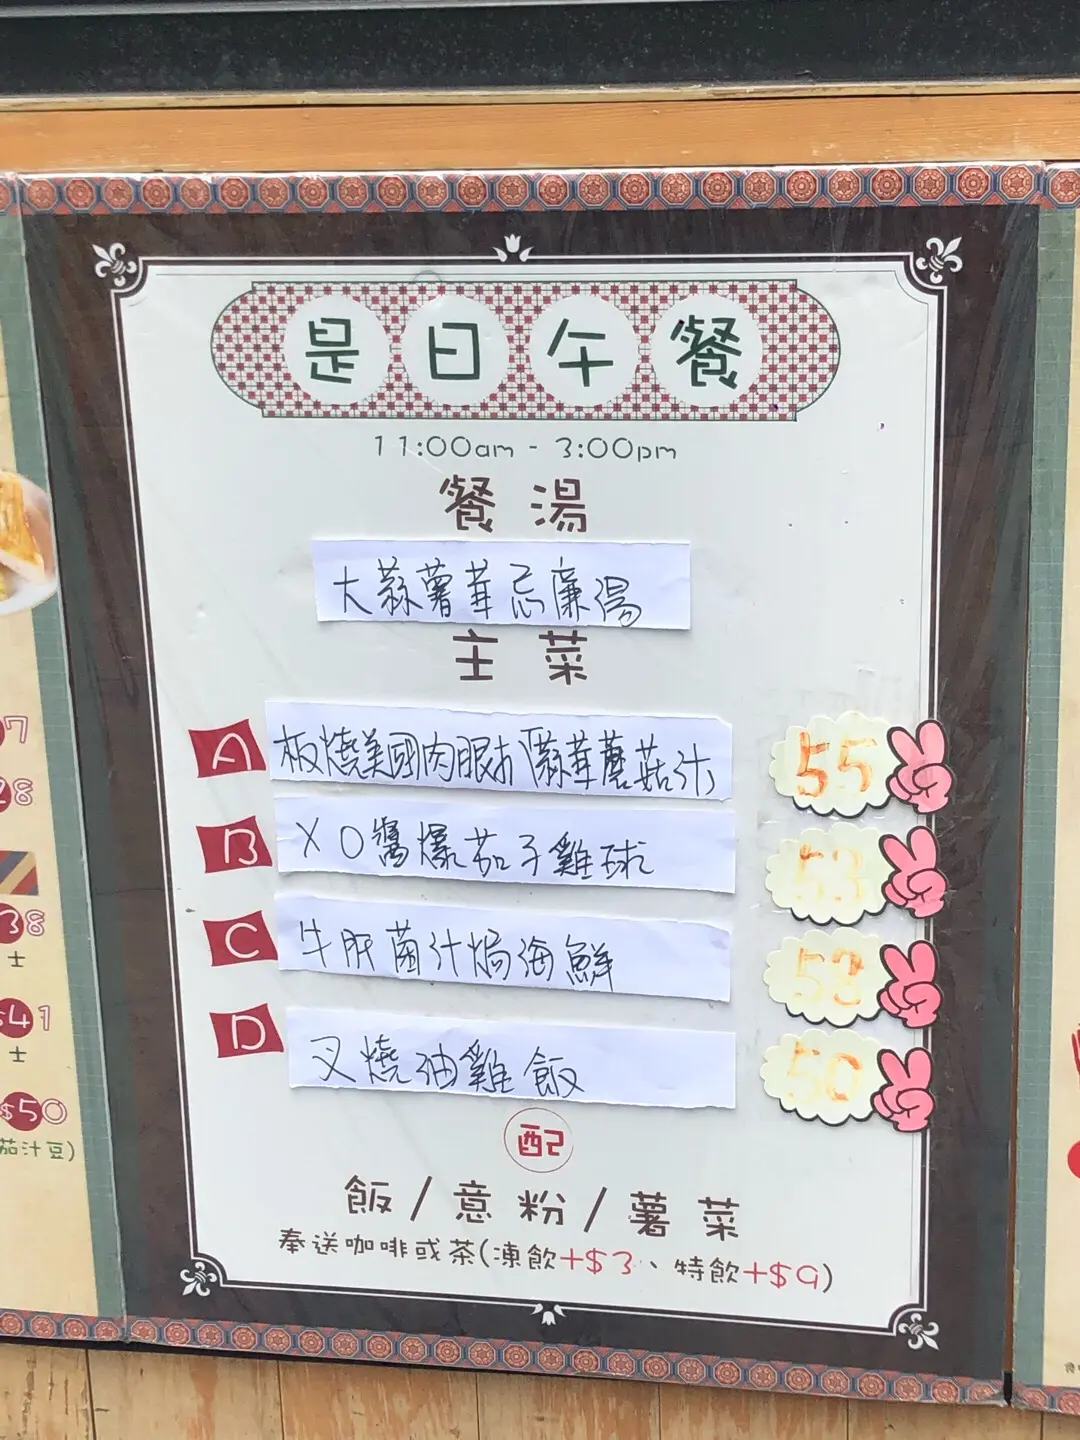 是日午餐
11:00am - 3:00pm
餐湯
大蒜薯茸忌廉湯
主菜
A 板燒美國肉眼扒蒜茸蘑菇汁 55
B XO醬爆茄子雞球 53
C 牛肝菌汁焗海鮮 53
D 叉燒油雞飯 50
配
飯/意粉/薯菜
奉送咖啡或茶(凍飲+$3、特飲+$9)
7
28
38
士
$41
士
$50
茄汁豆)